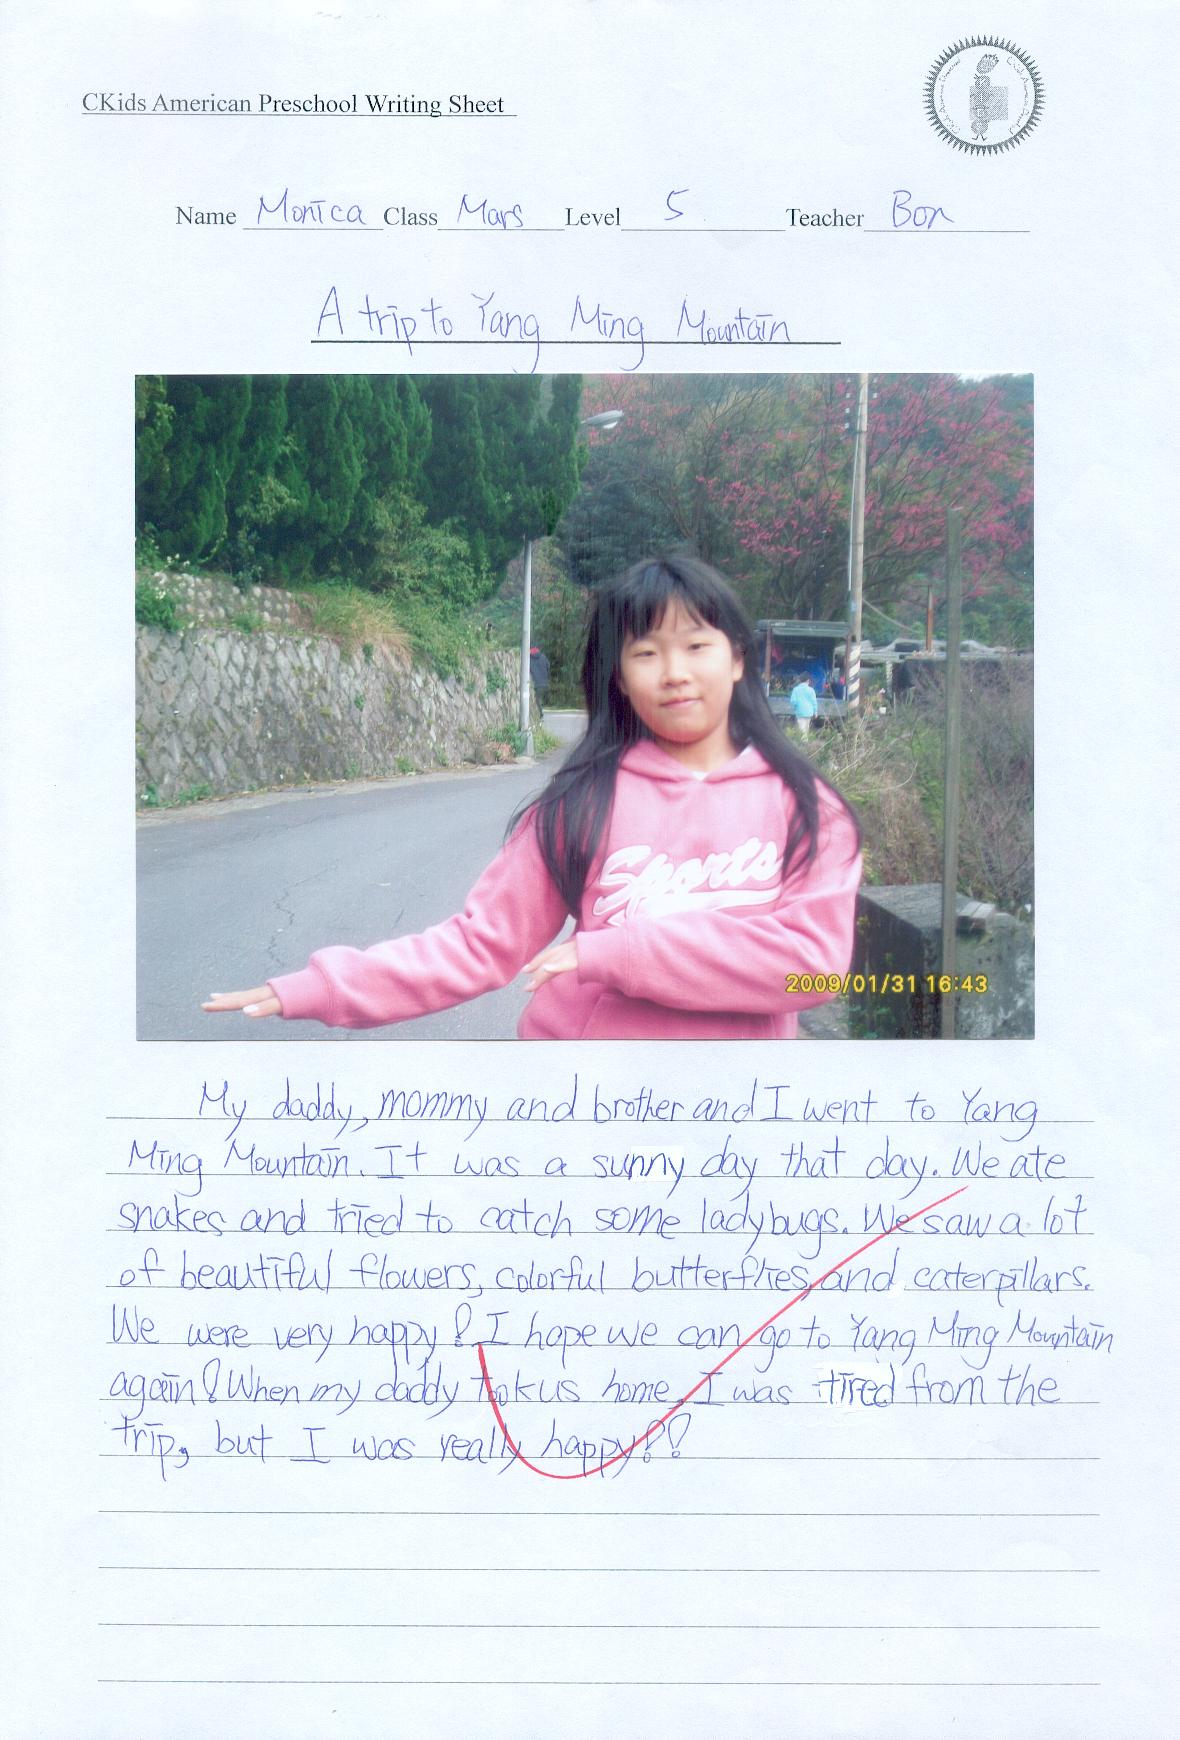 CKids American Preschool Writing Sheet
Name Monica Class Mars Level 5 Teacher Bon
A trip to Yang Ming Mountain
Sports
2009/01/31 16:43
My daddy, mommy and brother and I went to Yang
Ming Mountain. It was a sunny day that day. We ate
snakes and tried to catch some ladybugs. We saw a lot
of beautiful flowers, colorful butterflies, and caterpillars.
We were very happy! I hope we can go to Yang Ming Mountain
again! When my daddy took us home, I was tired from the
trip, but I was really happy!!